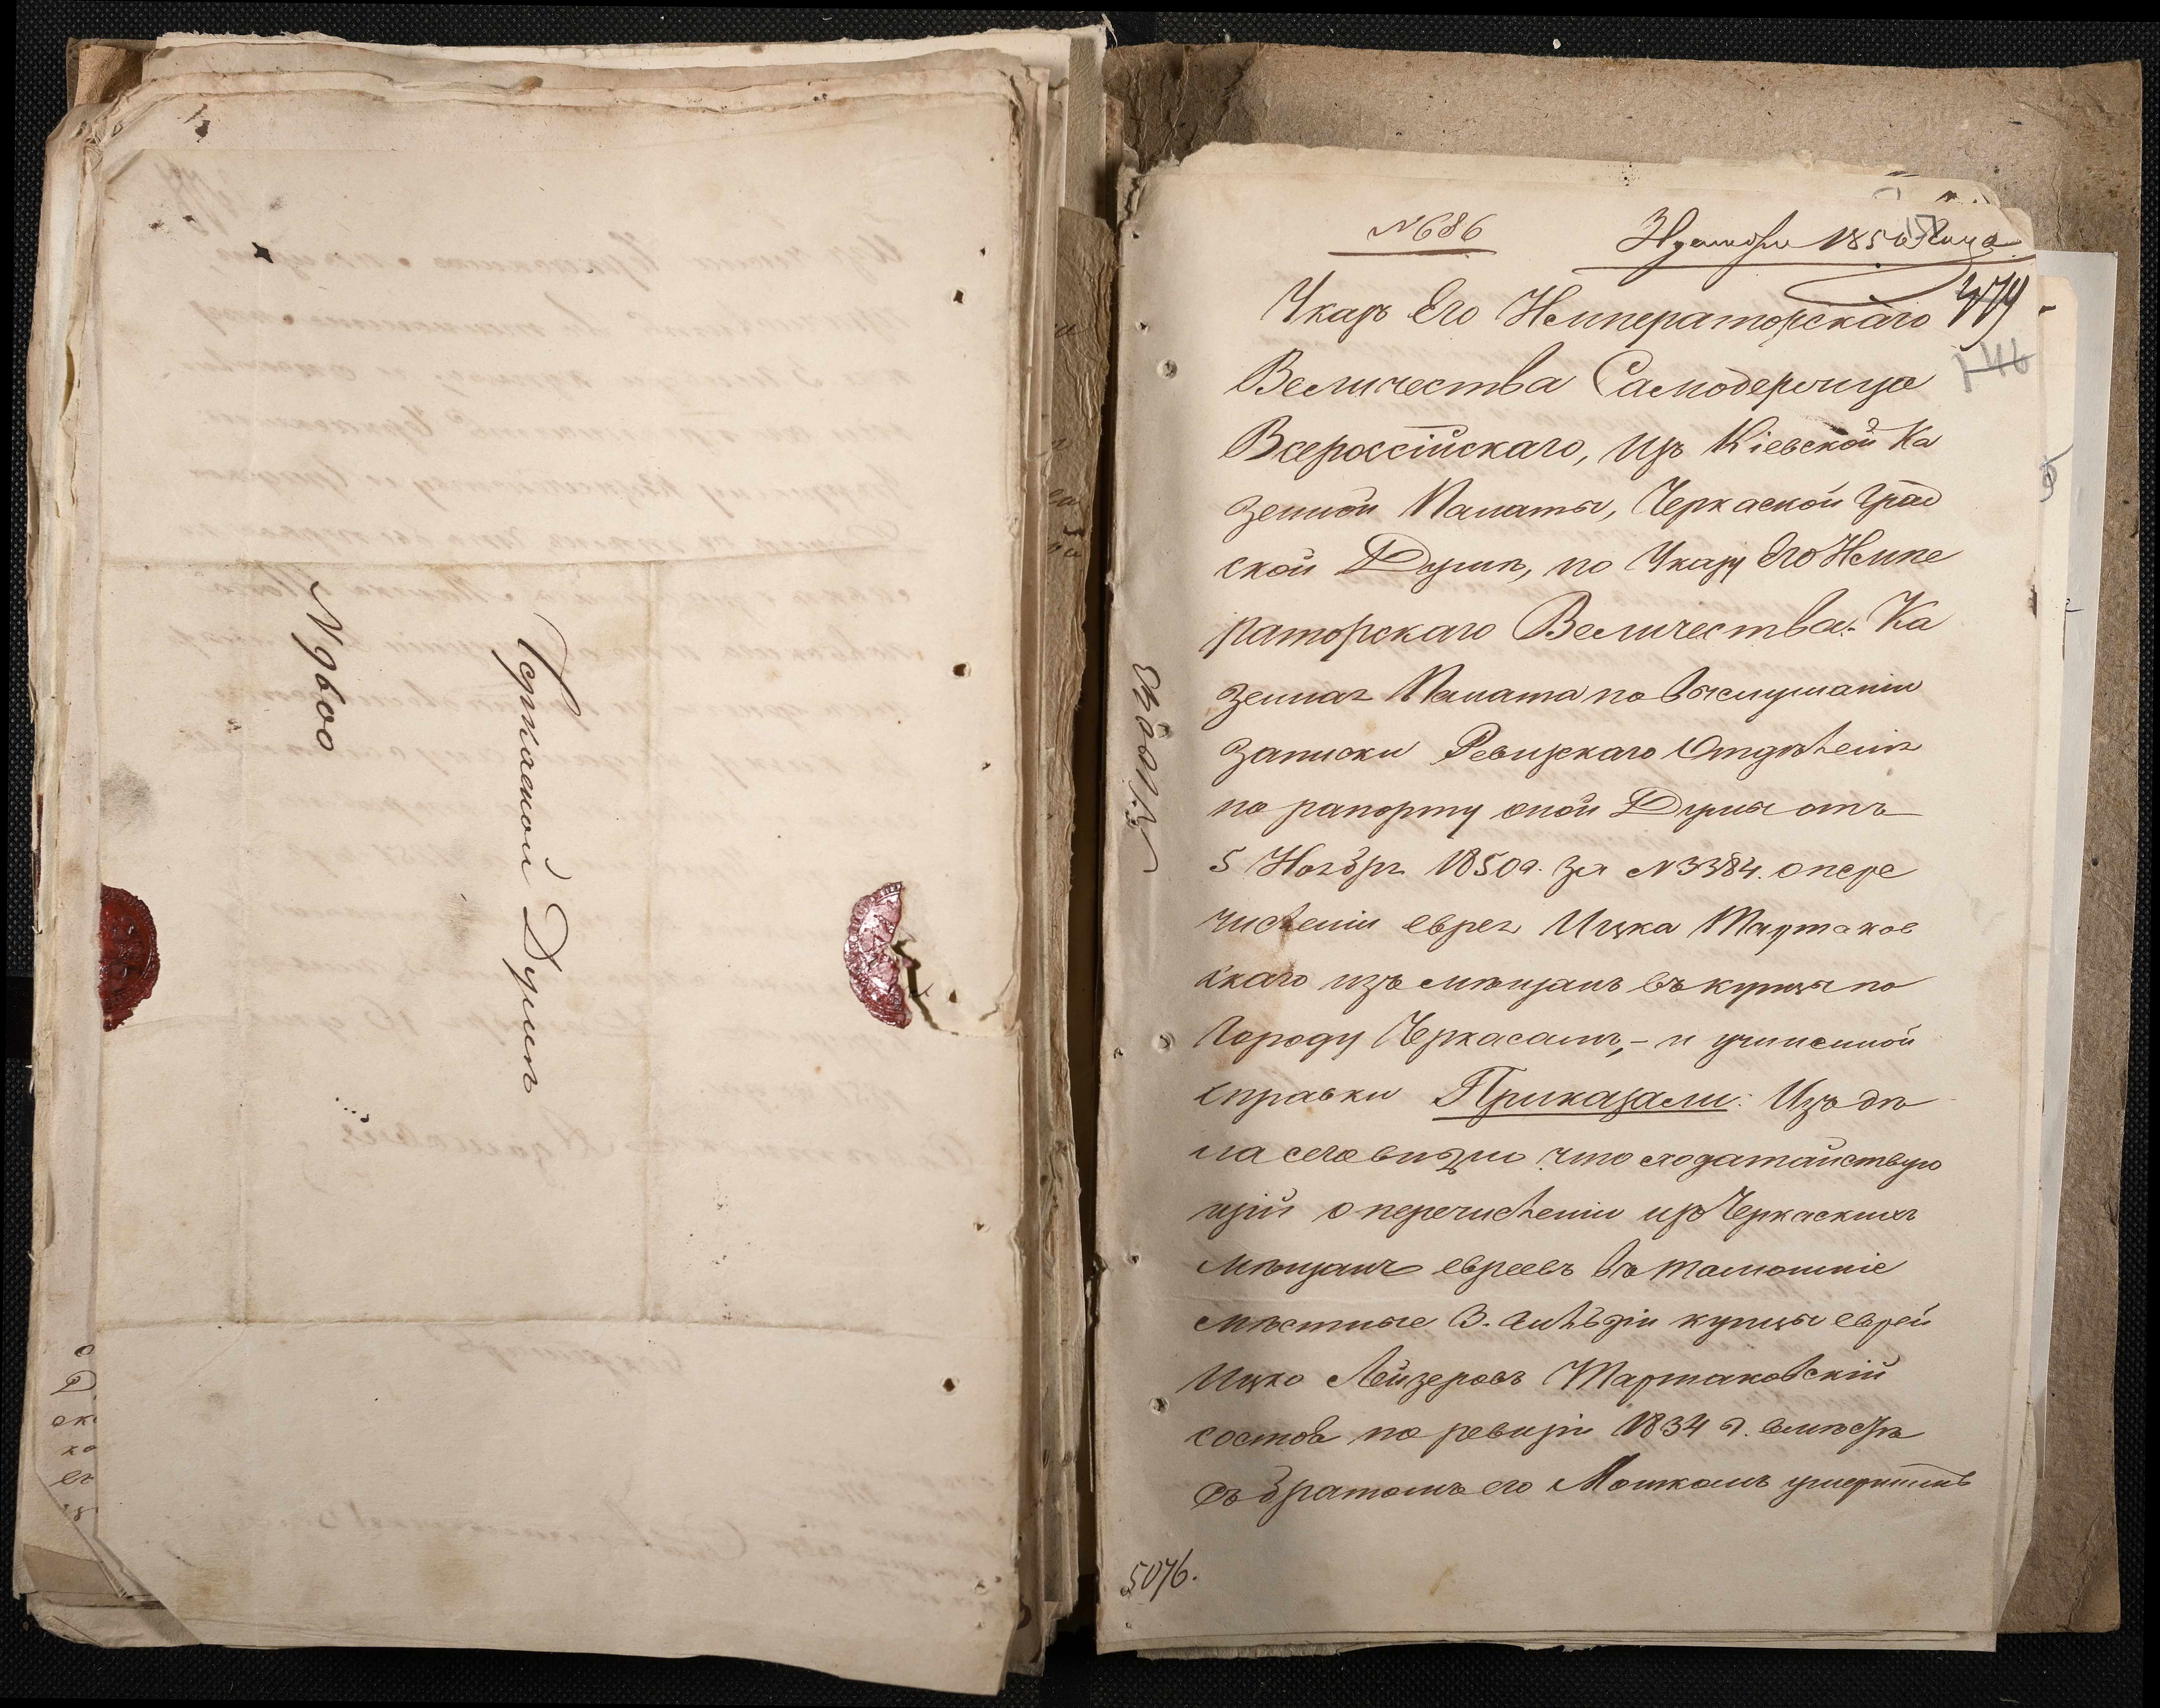 № 9600
Черкаской Думѣ
№ 686
1850 года
474
146
Указъ Его Императорскаго
Величества Самодержца
Всероссійскаго, изъ Кіевской Ка
зенной Палаты, Черкаской Град
ской Думѣ, по Указу Его Импе
раторскаго Величества. Ка
зенная Палата по выслушаніи
записки Ревизскаго Отдѣленія
по рапорту оной Думы отъ
5 Ноября 1850 г. за № 3384. о пере
численіи еврея Ицка Тартаков
скаго изъ мѣщанъ въ купцы по
городу Черкасамъ, – и учиненной
справки Приказали: Изъ дѣ
ла сего видно что ходатайствую
щій о перечисленіи изъ Черкаскихъ
мѣщанъ евреевъ въ тамошніе
мѣстные 3. гильдіи купцы еврей
Ицко Лейзеровъ Тартаковскій
состоя по ревизіи 1834 г. вмѣстѣ
съ братомъ его Мошкомъ умершимъ
5076.